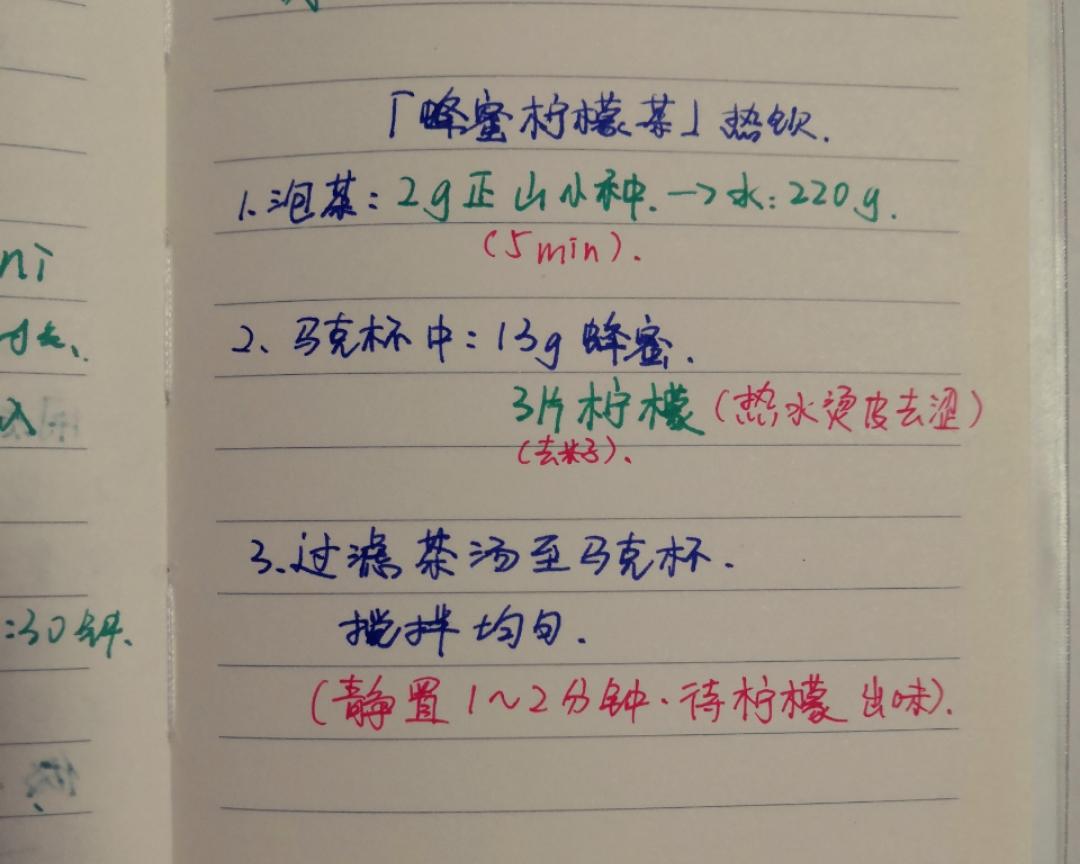 「蜂蜜柠檬茶」热饮.
1.泡茶:2g正山小种.→水:220g.
(5min).
2、马克杯中:13g蜂蜜.
3片柠檬(热水烫皮去涩)
(去籽).
3.过滤茶汤至马克杯.
搅拌均匀.
(静置1~2分钟.待柠檬出味).
ni
入
:30分钟.